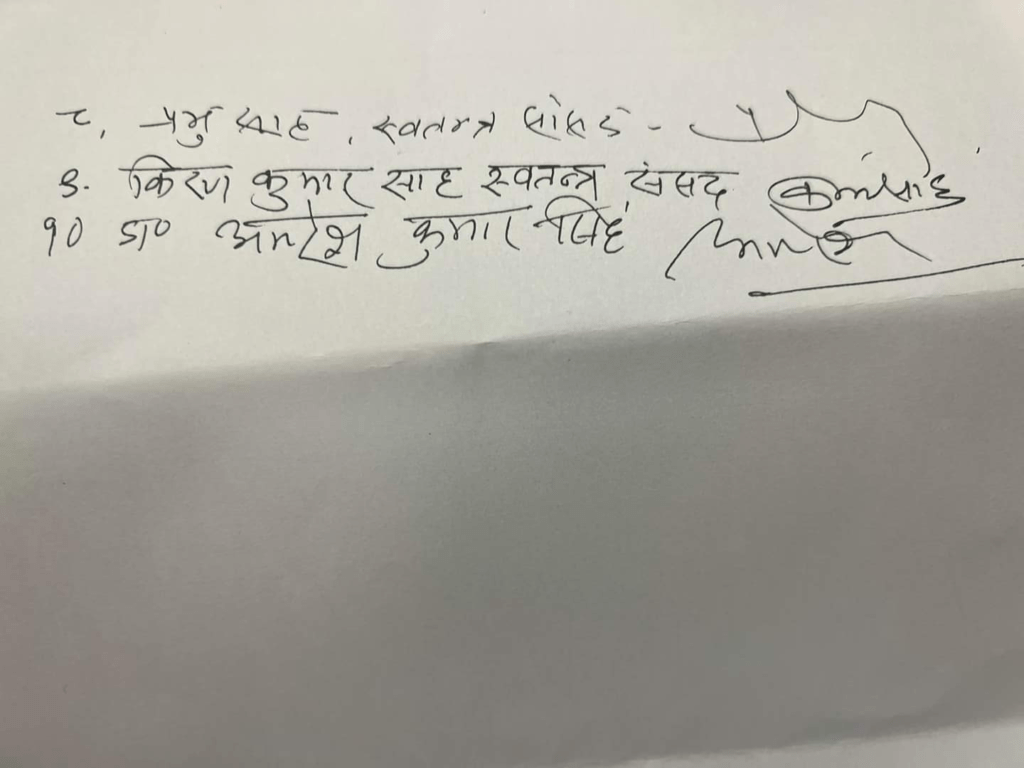 ८. प्रभु साह, स्वतन्त्र सांसद -
९. किरण कुमार साह स्वतन्त्र संसद
१० डा० अमरेश कुमार सिंह